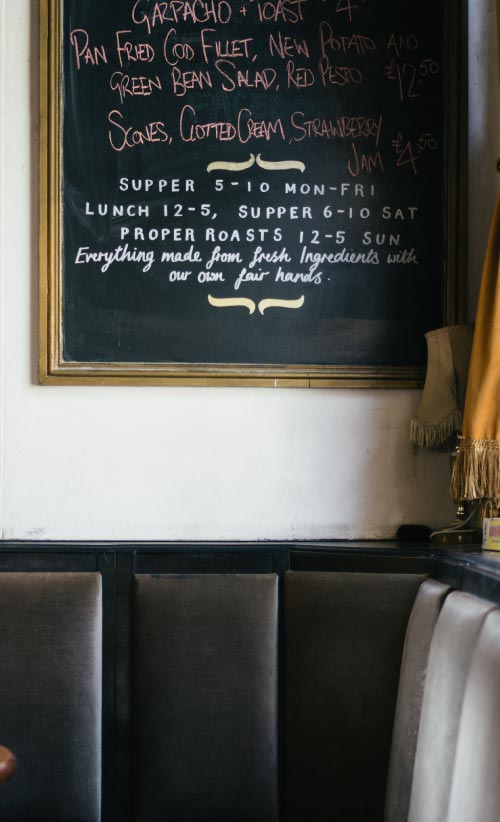 GAZPACHO + TOAST 4
PAN FRIED COD FILLET, NEW POTATO AND
GREEN BEAN SALAD, RED PESTO £12.50
SCONES, CLOTTED CREAM, STRAWBERRY
JAM £4.50
SUPPER 5-10 MON-FRI
LUNCH 12-5, SUPPER 6-10 SAT
PROPER ROASTS 12-5 SUN
Everything made from fresh Ingredients with
our own fair hands.